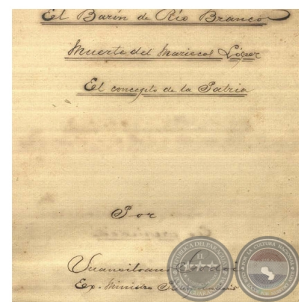 El Barón de Río Branco
Muerte del Mariscal López
El concepto de la Patria
Por
Ex-Ministro